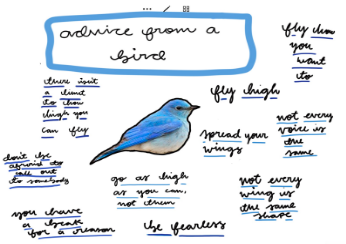 advice from a
bird
fly how
you
want
to
there isn't
a limit
to how
high you
can fly
fly high
not every
voice is
the
same
spread your
wings
don't be
afraid to
call out
to somebody
go as high
as you can,
not them
not every
wing is
the same
shape
you have
a beak
for a reason
be fearless